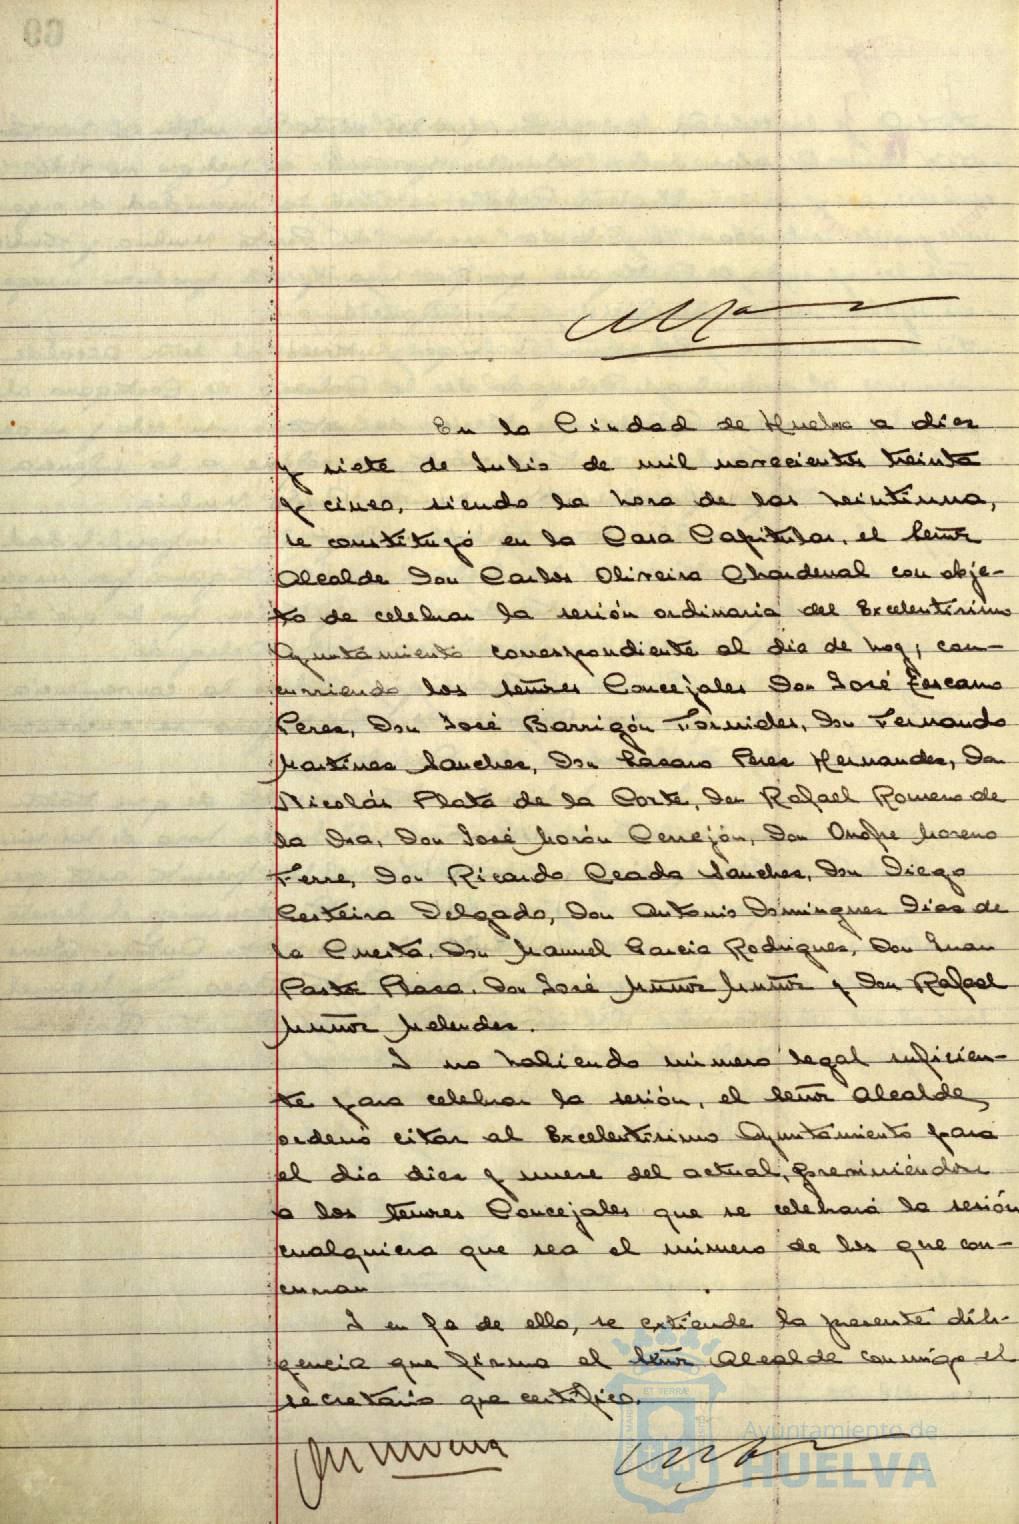 En la Ciudad de Huelva a diez
y siete de Julio de mil novecientos treinta
y cinco, siendo la hora de las veintiuna,
se constituyó en la Casa Capitular, el Señor
Alcalde Don Carlos Oliveira Chardenal con obje-
to de celebrar la sesión ordinaria del Excelentísimo
Ayuntamiento correspondiente al día de hoy, con-
curriendo los señores Concejales Don José Lescano
Perez, Don José Barrigón Fornieles, Don Fernando
Martinez Sanchez, Don Lázaro Perez Hernandez, Don
Nicolás Plata de la Corte, Don Rafael Romero de
la Osa, Don José Morón Cerrejón, Don Onofre Moreno
Ferre, Don Ricardo Ceada Sánchez, Don Diego
Delgado, Don Antonio Dominguez Diaz de
la Cuesta, Don Manuel Garcia Rodriguez, Don Juan
Plaza, Don José Muñoz Muñoz y Don Rafael
Muñoz Melendez.
Y no habiendo número legal suficien-
te para celebrar la sesión, el Señor Alcalde,
ordenó citar al Excelentísimo Ayuntamiento para
el día diez y nueve del actual, previniéndose
a los señores Concejales que se celebrará la sesión
cualquiera que sea el número de los que con-
curran
Y en fe de ello, se extiende la presente dili-
gencia que firma el Señor Alcalde conmigo el
secretario que certifico.
Ayuntamiento de
HUELVA